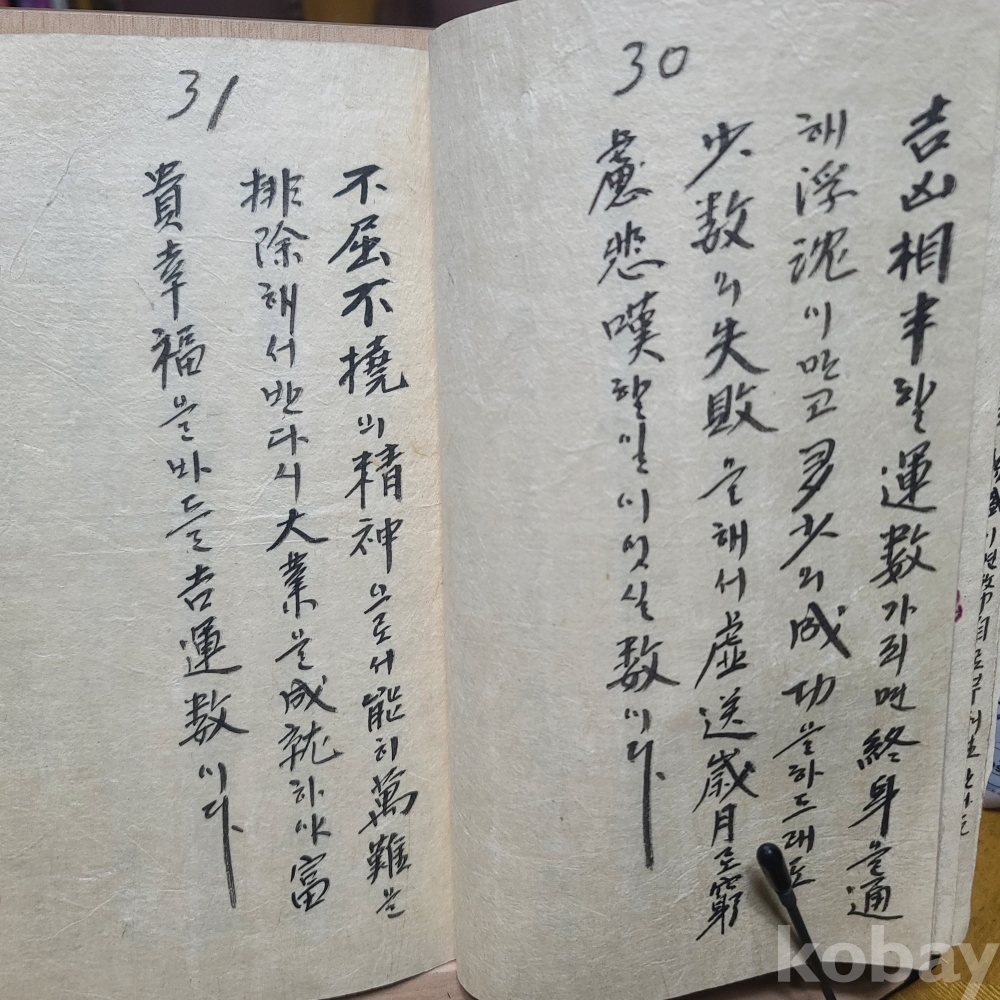 30
吉凶相半할運數가되면終身을通
해浮沈이만고多少의成功을하드래도
少数의失敗을해서虛送歲月로窮
慮悲嘆할일이잇실数이다.
31
不屈不撓의精神으로서能히萬難을
排除해서반다시大業을成就하야富
貴幸福을바드를吉運数이다.
kobay